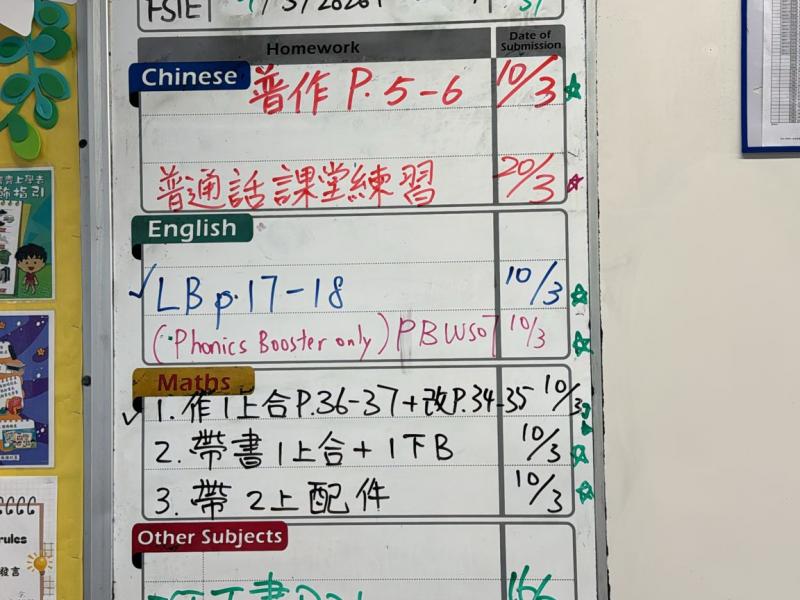 Homework
Date of Submission
Chinese
普作 P. 5-6 10/3
普通話課堂練習 20/3
English
LB p.17-18 10/3
(Phonics Booster only) PBWS07 10/3
Maths
1. 作1上合P.36-37+改P.34-35 10/3
2. 帶書1上合+1下B 10/3
3. 帶2上配件 10/3
Other Subjects